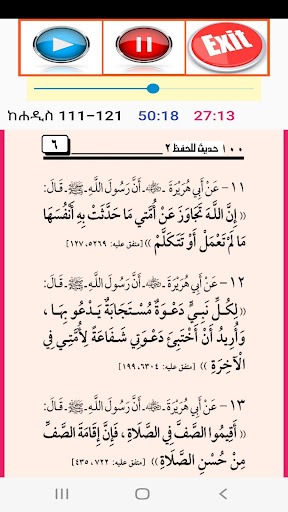 Exit
ከሐዲስ 111-121 50:18 27:13
١٠٠ حديث للحفظ ٢ ٦
١١ - عَنْ أَبِي هُرَيْرَةَ - ﷺ - أَنَّ رَسُولَ اللَّهِ - ﷺ - قَالَ:
(( إِنَّ اللَّهَ تَجَاوَزَ عَنْ أُمَّتِي مَا حَدَّثَتْ بِهِ أَنْفُسَهَا
مَا لَمْ تَعْمَلْ أَوْ تَتَكَلَّمْ )) [متفق عليه: ٥٢٦٩، ١٢٧]
١٢ - عَنْ أَبِي هُرَيْرَةَ - ﷺ - أَنَّ رَسُولَ اللَّهِ - ﷺ - قَالَ:
(( لِكُلِّ نَبِيٍّ دَعْوَةٌ مُسْتَجَابَةٌ يَدْعُو بِهَا،
وَأُرِيدُ أَنْ أَخْتَبِئَ دَعْوَتِي شَفَاعَةً لِأُمَّتِي فِي
الْآخِرَةِ )) [متفق عليه: ٦٣٠٤، ١٩٩]
١٣ - عَنْ أَبِي هُرَيْرَةَ - ﷺ - أَنَّ رَسُولَ اللَّهِ - ﷺ - قَالَ:
(( أَقِيمُوا الصَّفَّ فِي الصَّلَاةِ، فَإِنَّ إِقَامَةَ الصَّفِّ
مِنْ حُسْنِ الصَّلَاةِ )) [متفق عليه: ٧٢٢، ٤٣٥]